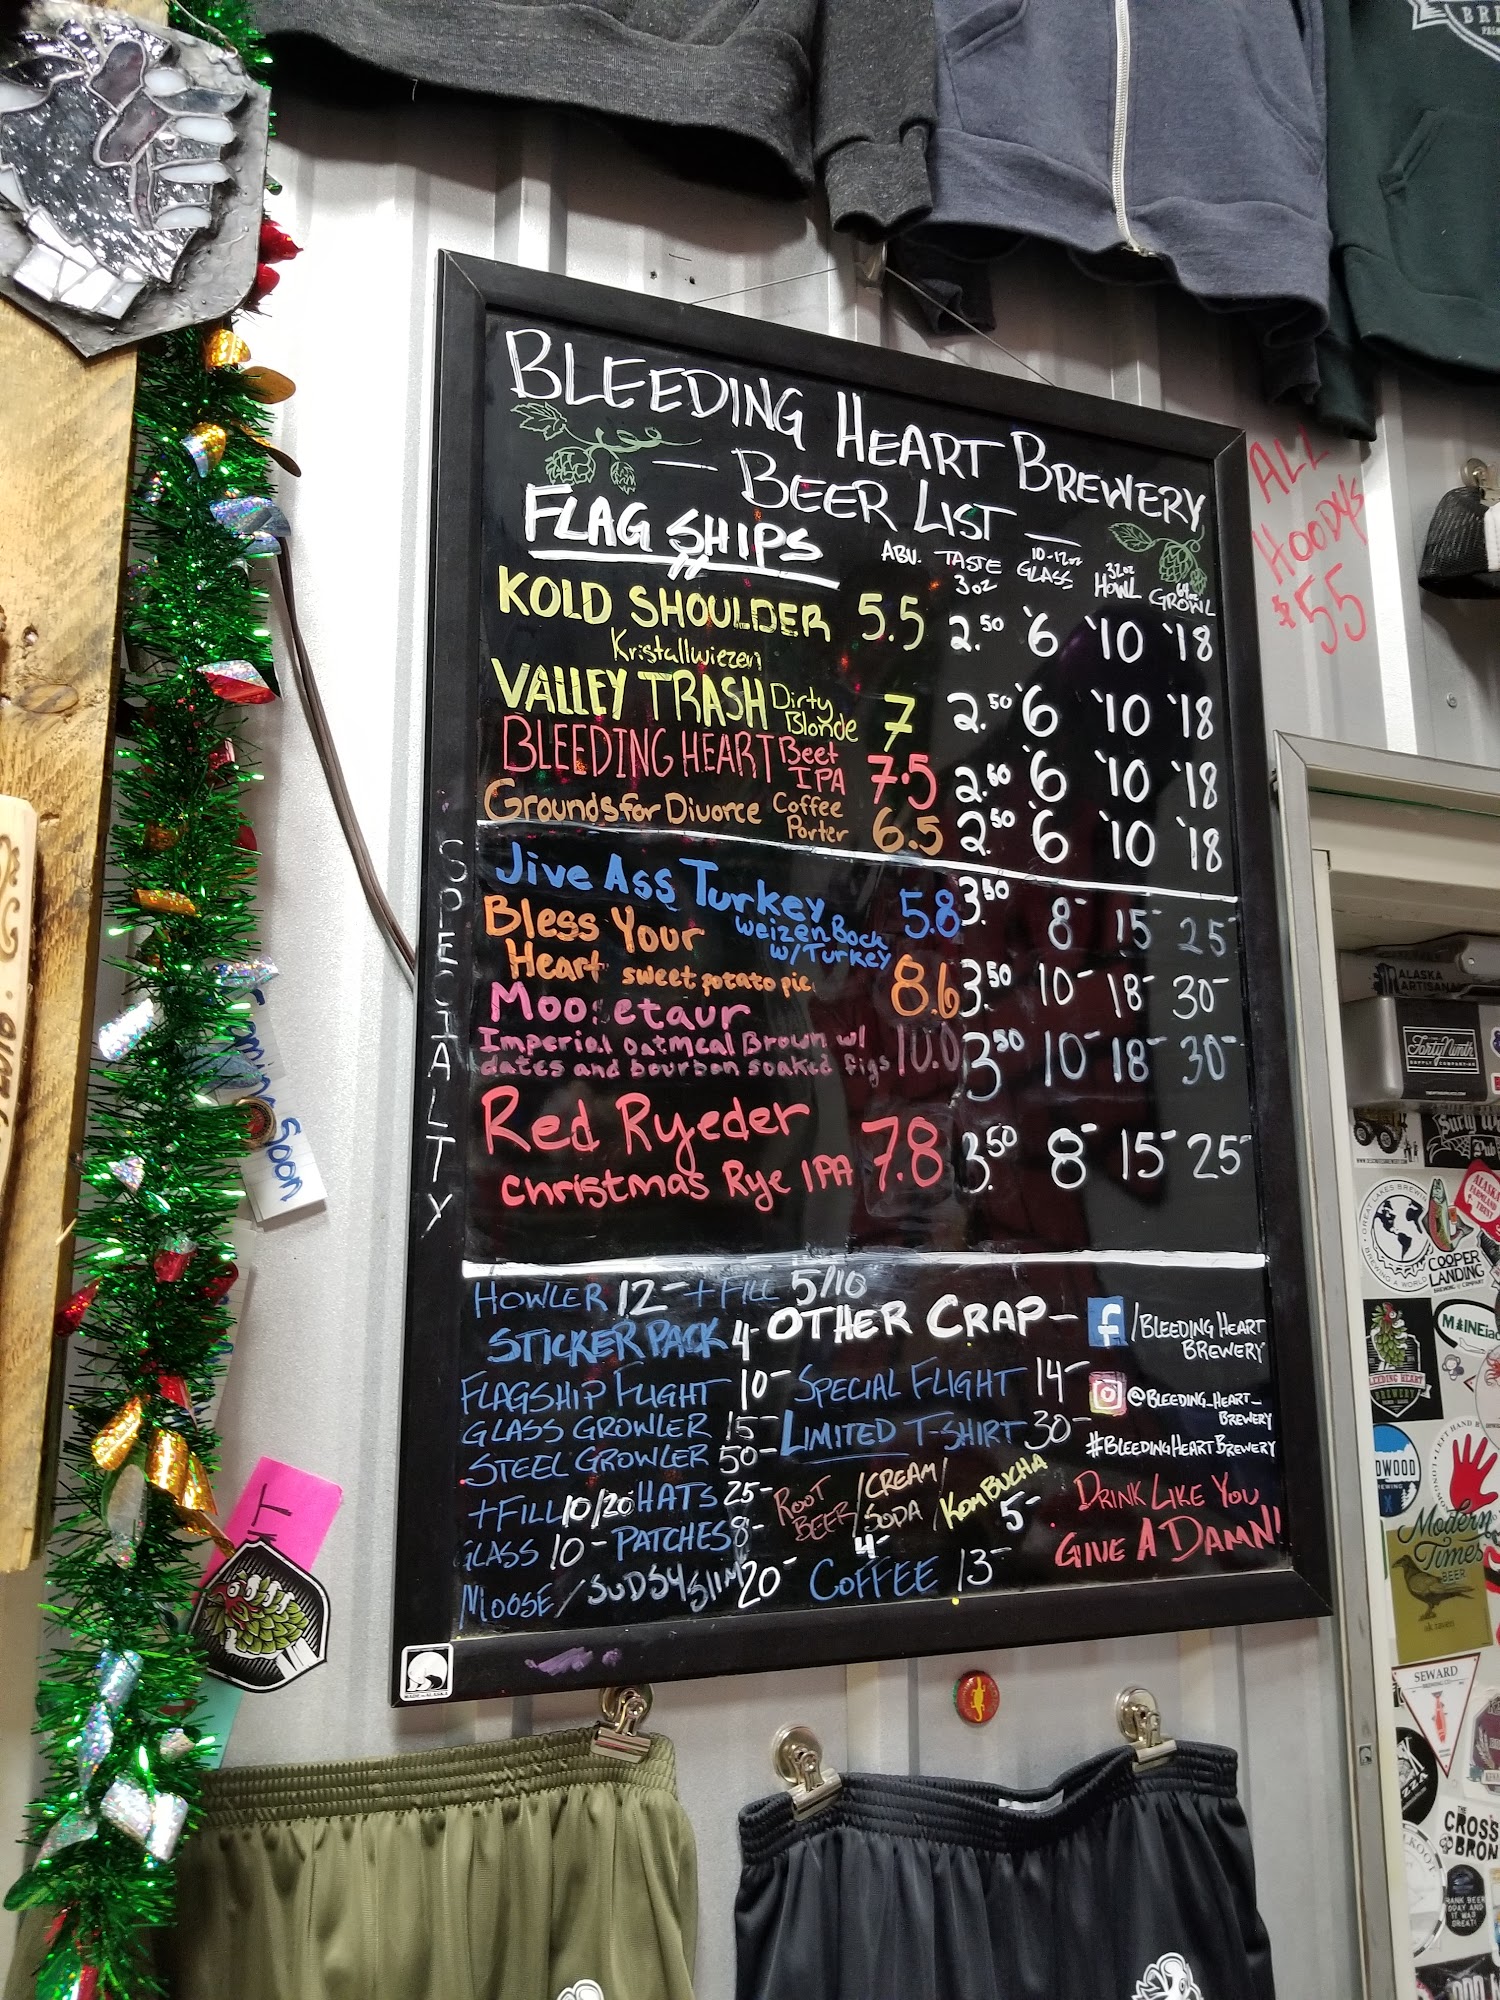 BLEEDING HEART BREWERY
— BEER LIST —
FLAG SHIPS
ABV. TASTE 3oz 10-12oz GLASS 32oz HOWL 64oz GROWL
KOLD SHOULDER 5.5 2.50 6 10 18
Kristallwiezen
VALLEY TRASH Dirty Blonde 7 2.50 6 10 18
BLEEDING HEART Beet IPA 7.5 2.50 6 10 18
Grounds for Divorce Coffee Porter 6.5 2.50 6 10 18
SPECIALTY
Jive Ass Turkey 5.8 3.50 8- 15- 25-
Weizen Bock w/ Turkey
Bless Your
Heart sweet potato pie 8.6 3.50 10- 18- 30-
Moosetaur
Imperial oatmeal Brown w/
dates and bourbon soaked figs 10.0 3.50 10- 18- 30-
Red Ryeder
christmas Rye IPA 7.8 3.50 8- 15- 25-
HOWLER 12- + FILL 5/10
STICKER PACK 4- OTHER CRAP-
FLAGSHIP FLIGHT 10- SPECIAL FLIGHT 14-
GLASS GROWLER 15- LIMITED T-SHIRT 30-
STEEL GROWLER 50-
+FILL 10/20 HATS 25- ROOT BEER / CREAM SODA / KOMBUCHA
4- 5-
GLASS 10- PATCHES 8-
MOOSE/SUDSY SLIM 20- COFFEE 13-
f/BLEEDING HEART
BREWERY
@BLEEDING_HEART_
BREWERY
#BLEEDINGHEARTBREWERY
DRINK LIKE YOU
GIVE A DAMN!
ALL
HOODY'S
$55
Soon
ALASKA
ARTISAN
Forty Ninth
SUPPLY COMPANY
GREAT LAKES BREWIN
BREWING A WORLD
COOPER
LANDING
BREWING COMPANY
MAINE
BREWERY
LEFT HAND
Modern
Times
BEER
SEWARD
THE
CROSS
BRON